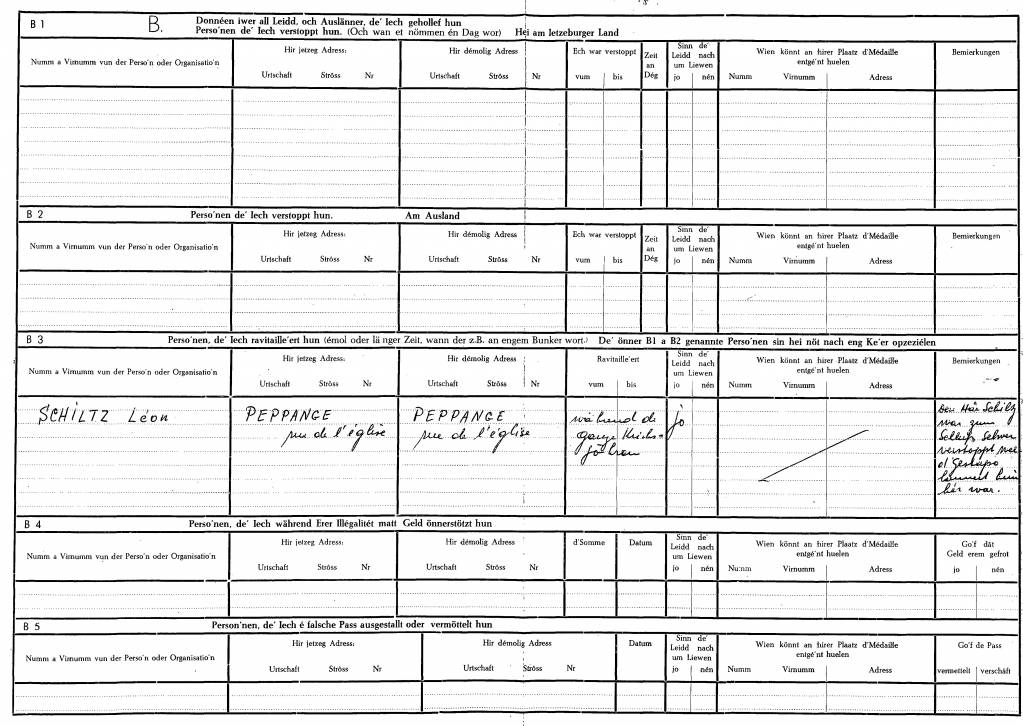 B 1
B.
Donnéen iwer all Leidd, och Auslänner, de' Iech gehollef hun
Perso'nen de' Iech verstoppt hun. (Och wan et nömmen én Dag wor) Hei am letzeburger Land
Numm a Virnumm vun der Perso'n oder Organisatio'n
Hir jetzeg Adress:
Urtschaft Ströss Nr
Hir démolig Adress
Urtschaft Ströss Nr
Ech war verstoppt
vum bis
Zeit
an
Dég
Sinn de'
Leidd nach
um Liewen
jo nén
Wien könnt an hirer Plaatz d'Médaille
entgé'nt huelen
Numm Virnumm Adress
Bemierkungen
B 2
Perso'nen de' Iech verstoppt hun. Am Ausland
Numm a Virnumm vun der Perso'n oder Organisatio'n
Hir jetzeg Adress:
Urtschaft Ströss Nr
Hir démolig Adress
Urtschaft Ströss Nr
Ech war verstoppt
vum bis
Zeit
an
Dég
Sinn de'
Leidd nach
um Liewen
jo nén
Wien könnt an hirer Plaatz d'Médaille
entgé'nt huelen
Numm Virnumm Adress
Bemierkungen
B 3
Perso'nen, de' Iech ravitaille'ert hun (émol oder lä nger Zeit, wann der z.B. an engem Bunker wort.) De' önner B1 a B2 genannte Perso'nen sin hei nöt nach eng Ke'er opzeziélen
Numm a Virnumm vun der Perso'n oder Organisatio'n
Hir jetzeg Adress:
Urtschaft Ströss Nr
Hir démolig Adress
Urtschaft Ströss Nr
Ravitaille'ert
vum bis
Sinn de'
Leidd nach
um Liewen
jo nén
Wien könnt an hirer Plaatz d'Médaille
entgé'nt huelen
Numm Virnumm Adress
Bemierkungen
SCHILTZ Léon
PEPPANGE
rue de l'église
PEPPANGE
rue de l'église
während de
ganze Krichs=
jöhren
jo
Den Här Schiltz
war zum
Selwer
verstoppt
d'Gestapo
hannert him
hier war.
B 4
Perso'nen, de' Iech während Erer Illégalitét matt Geld önnerstötzt hun
Numm a Virnumm vun der Perso'n oder Organisatio'n
Hir jetzeg Adress:
Urtschaft Ströss Nr
Hir démolig Adress
Urtschaft Ströss Nr
d'Somme
Datum
Sinn de'
Leidd nach
um Liewen
jo nén
Wien könnt an hirer Plaatz d'Médaille
entgé'nt huelen
Numm Virnumm Adress
Go'f dât
Geld erem gefrot
jo nén
B 5
Person'nen, de' Iech é falsche Pass ausgestallt oder vermöttelt hun
Numm a Virnumm vun der Perso'n oder Organisatio'n
Hir jetzeg Adress:
Urtschaft Ströss Nr
Hir démolig Adress
Urtschaft Ströss Nr
Datum
Sinn de'
Leidd nach
um Liewen
jo nén
Wien könnt an hirer Plaatz d'Médaille
entgé'nt huelen
Numm Virnumm Adress
Go'f de Pass
vermettelt verschäft